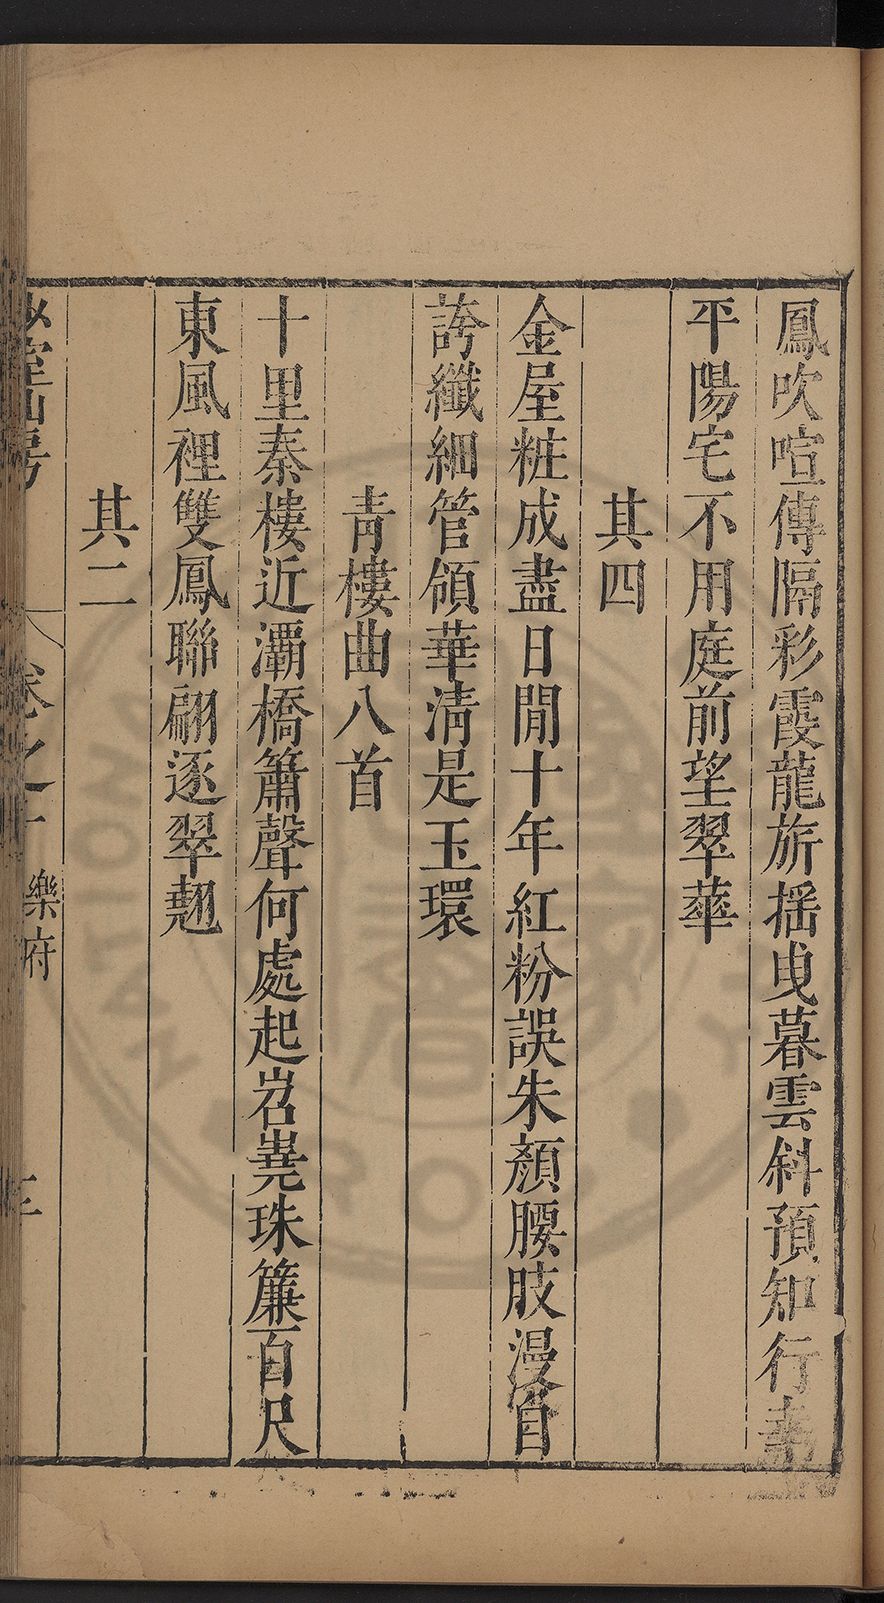 鳳吹喧傳隔彩霞龍旂揺曳暮雲斜預知行幸
平陽宅不用庭前望翠華
其四
金屋粧成盡日閒十年紅粉誤朱顏腰肢漫自
誇纖細管領華清是玉環
青樓曲八首
十里秦樓近灞橋簫聲何處起岧嶤珠簾百尺
東風裡雙鳳聯翩逐翠翹
其二
室山房
卷之
樂府
三